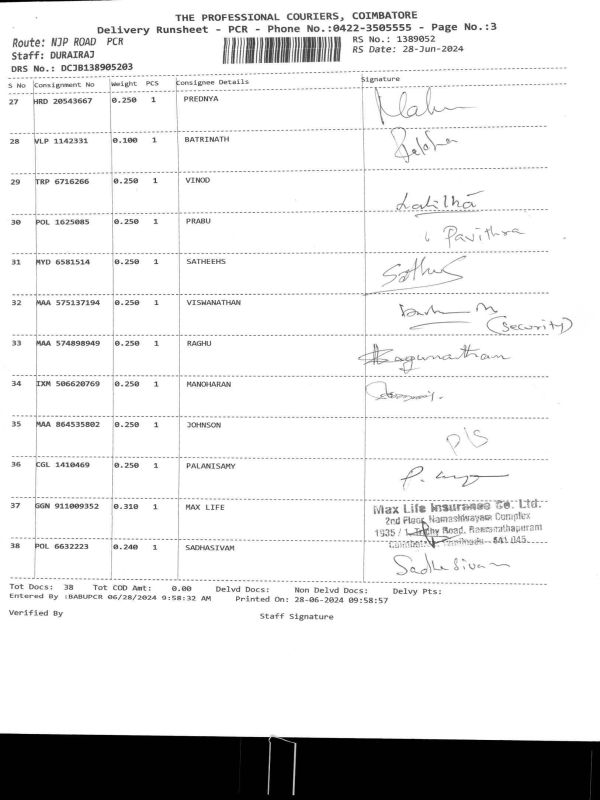 THE PROFESSIONAL COURIERS, COIMBATORE
Delivery Runsheet - PCR - Phone No.:0422-3505555 - Page No.:3
Route: NJP ROAD PCR RS No.: 1389052
Staff: DURAIRAJ RS Date: 28-Jun-2024
DRS No.: DCJB138905203
S No Consignment No Weight PCS Consignee Details Signature
27 HRD 20543667 0.250 1 PREDNYA
28 VLP 1142331 0.100 1 BATRINATH
29 TRP 6716266 0.250 1 VINOD Lalitha
30 POL 1625085 0.250 1 PRABU Pavithra
31 MYD 6581514 0.250 1 SATHEEHS Sathees
32 MAA 575137194 0.250 1 VISWANATHAN
(Security)
33 MAA 574898949 0.250 1 RAGHU Ragunathan
34 IXM 506620769 0.250 1 MANOHARAN
35 MAA 864535802 0.250 1 JOHNSON P/S
36 CGL 1410469 0.250 1 PALANISAMY
37 GGN 911009352 0.310 1 MAX LIFE Max Life Insurance Co. Ltd.
2nd Floor, Namashivayam Complex
1935 / 1, Trichy Road, Ramanathapuram
Coimbatore, Tamilnadu - 641 045.
38 POL 6632223 0.240 1 SADHASIVAM Sadhesivam
Tot Docs: 38 Tot COD Amt: 0.00 Delvd Docs: Non Delvd Docs: Delvy Pts:
Entered By :BABUPCR 06/28/2024 9:58:32 AM Printed On: 28-06-2024 09:58:57
Verified By Staff Signature